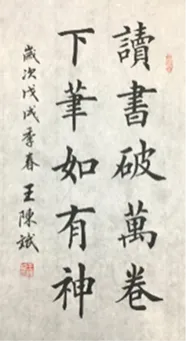 讀書破萬卷
下筆如有神
歲次戊戌季春王陳斌